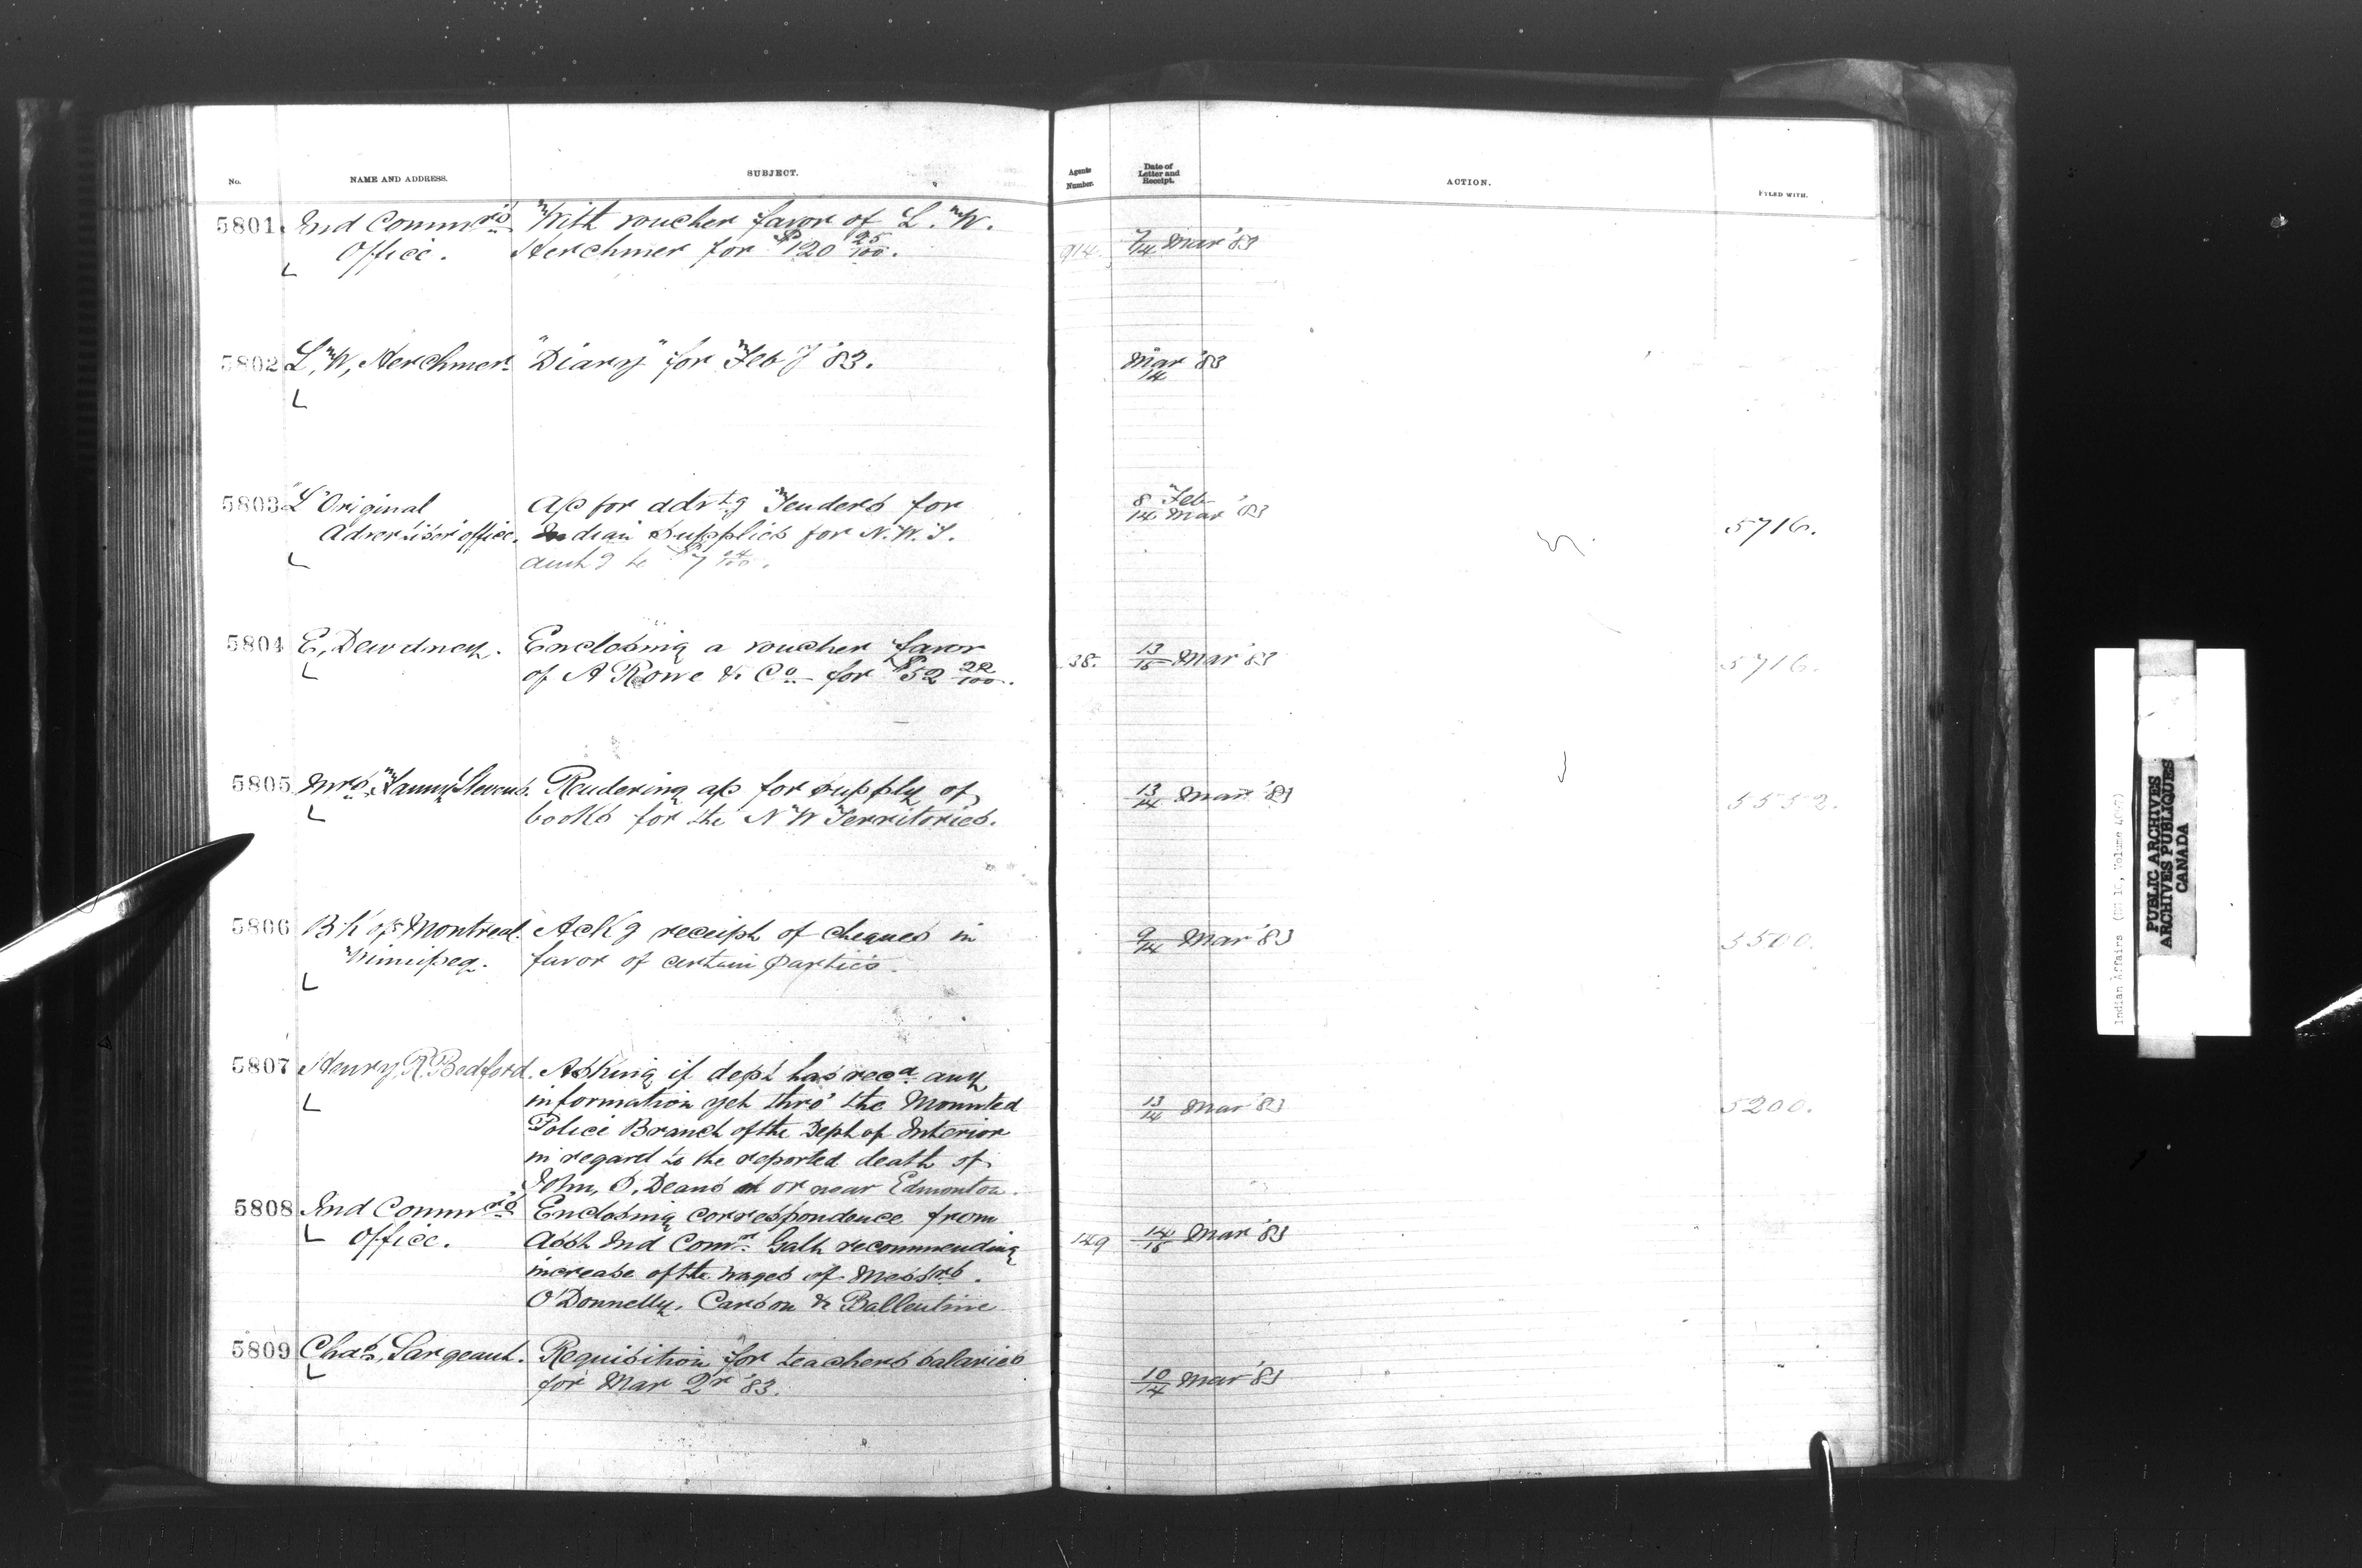 No. NAME AND ADDRESS. SUBJECT. Agents Number. Date of Letter and Receipt. ACTION. FILED WITH.
5801 Ind Commrs With voucher favor of L. W.
Office. Herchmer for $120 25/100. 914. 7/14 Mar '83
5802 L, W, Herchmer. "Diary" for Feby '83. Mar '83
14
5803 "L'Original Ap for advtg Tenders for 8 Feb
Advertiser office. Indian Supplies for N. W. T. 14 Mar '83 5716.
to $7
5804 E, Dewdney. Enclosing a voucher favor
of A Rowe & Co for $52 22/100. 38. 13/15 Mar '83 5716.
5805 Mrs, Fanny Stevens. Rendering ap for supply of 13/14 Mar '83 5552.
books for the N W Territories.
5806 Bk of Montreal. Ackg receipt of cheques in 9/14 Mar '83 5500.
Winnipeg. favor of certain parties.
5807 Henry, R. Bedford. Asking if dept has recd any
information yet thro' the Mounted 13/14 Mar '83 5200.
Police Branch of the Dept of Interior
in regard to the reported death of
John, O, Deans at or near Edmonton.
5808 Ind Commrs Enclosing correspondence from
Office. Asst Ind Comr Galt recommending 149 14/15 Mar '83
increase of the wages of Messrs.
O'Donnelly, Carson & Ballentine
5809 Chas, Sargeant. Requisition for teachers salaries
for Mar Qr '83. 10/14 Mar '83
PUBLIC ARCHIVES
ARCHIVES PUBLIQUES
CANADA